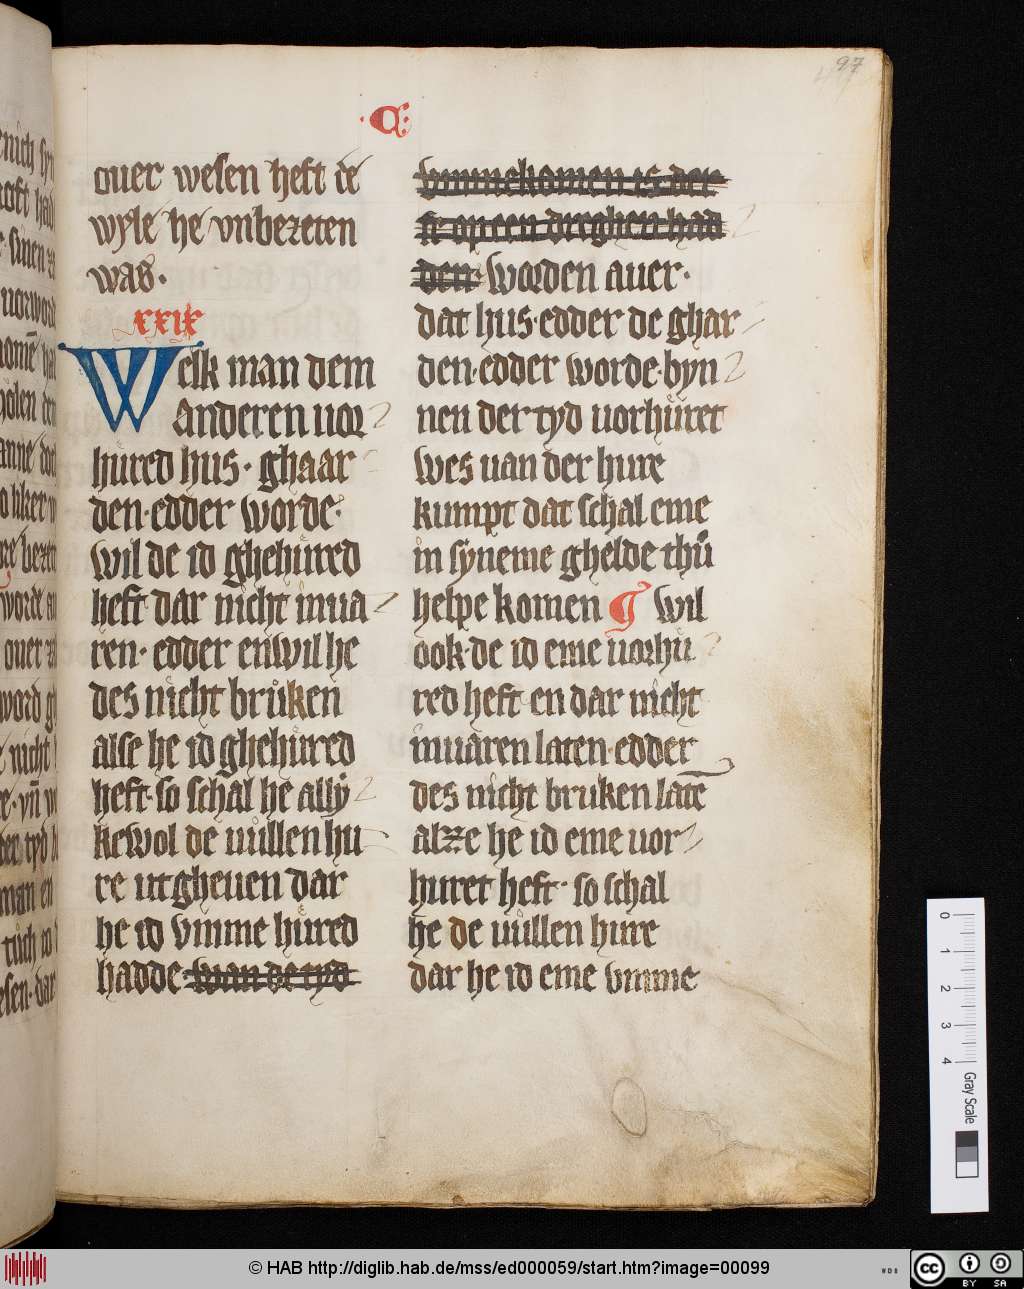 97
C
ouer wesen heft de
wyle he vnbezeten
was.
xxix
Welk man dem
anderen uor
hůred hus. ghaar
den. edder worde.
wil de id ghehůred
heft dar nicht inua
ren. edder enwil he
des nicht brůken
alse he id ghehůred
heft. so schal he ally
kewol de uůllen hu
re utgheuen dar
he id vmme hůred
hadde. wan de tyd
vmmekomen is der
se opeen dreghen had
den. worden auer.
dat hus. edder de ghar
den. edder worde. byn
nen der tyd uorhůret
wes uan der hure
kumpt dat schal eme
in syneme ghelde thů
helpe komen wil
ook. de id eme uorhu
red heft en dar nicht
inuaren laten. edder
des nicht bruken latē
alzze he id eme uor
huret heft. so schal
he de uůllen hure
dar he id eme vmme
enich syn
hus
© HAB http://diglib.hab.de/mss/ed000059/start.htm?image=00099
0 1 2 3 4 Gray Scale
cc BY SA